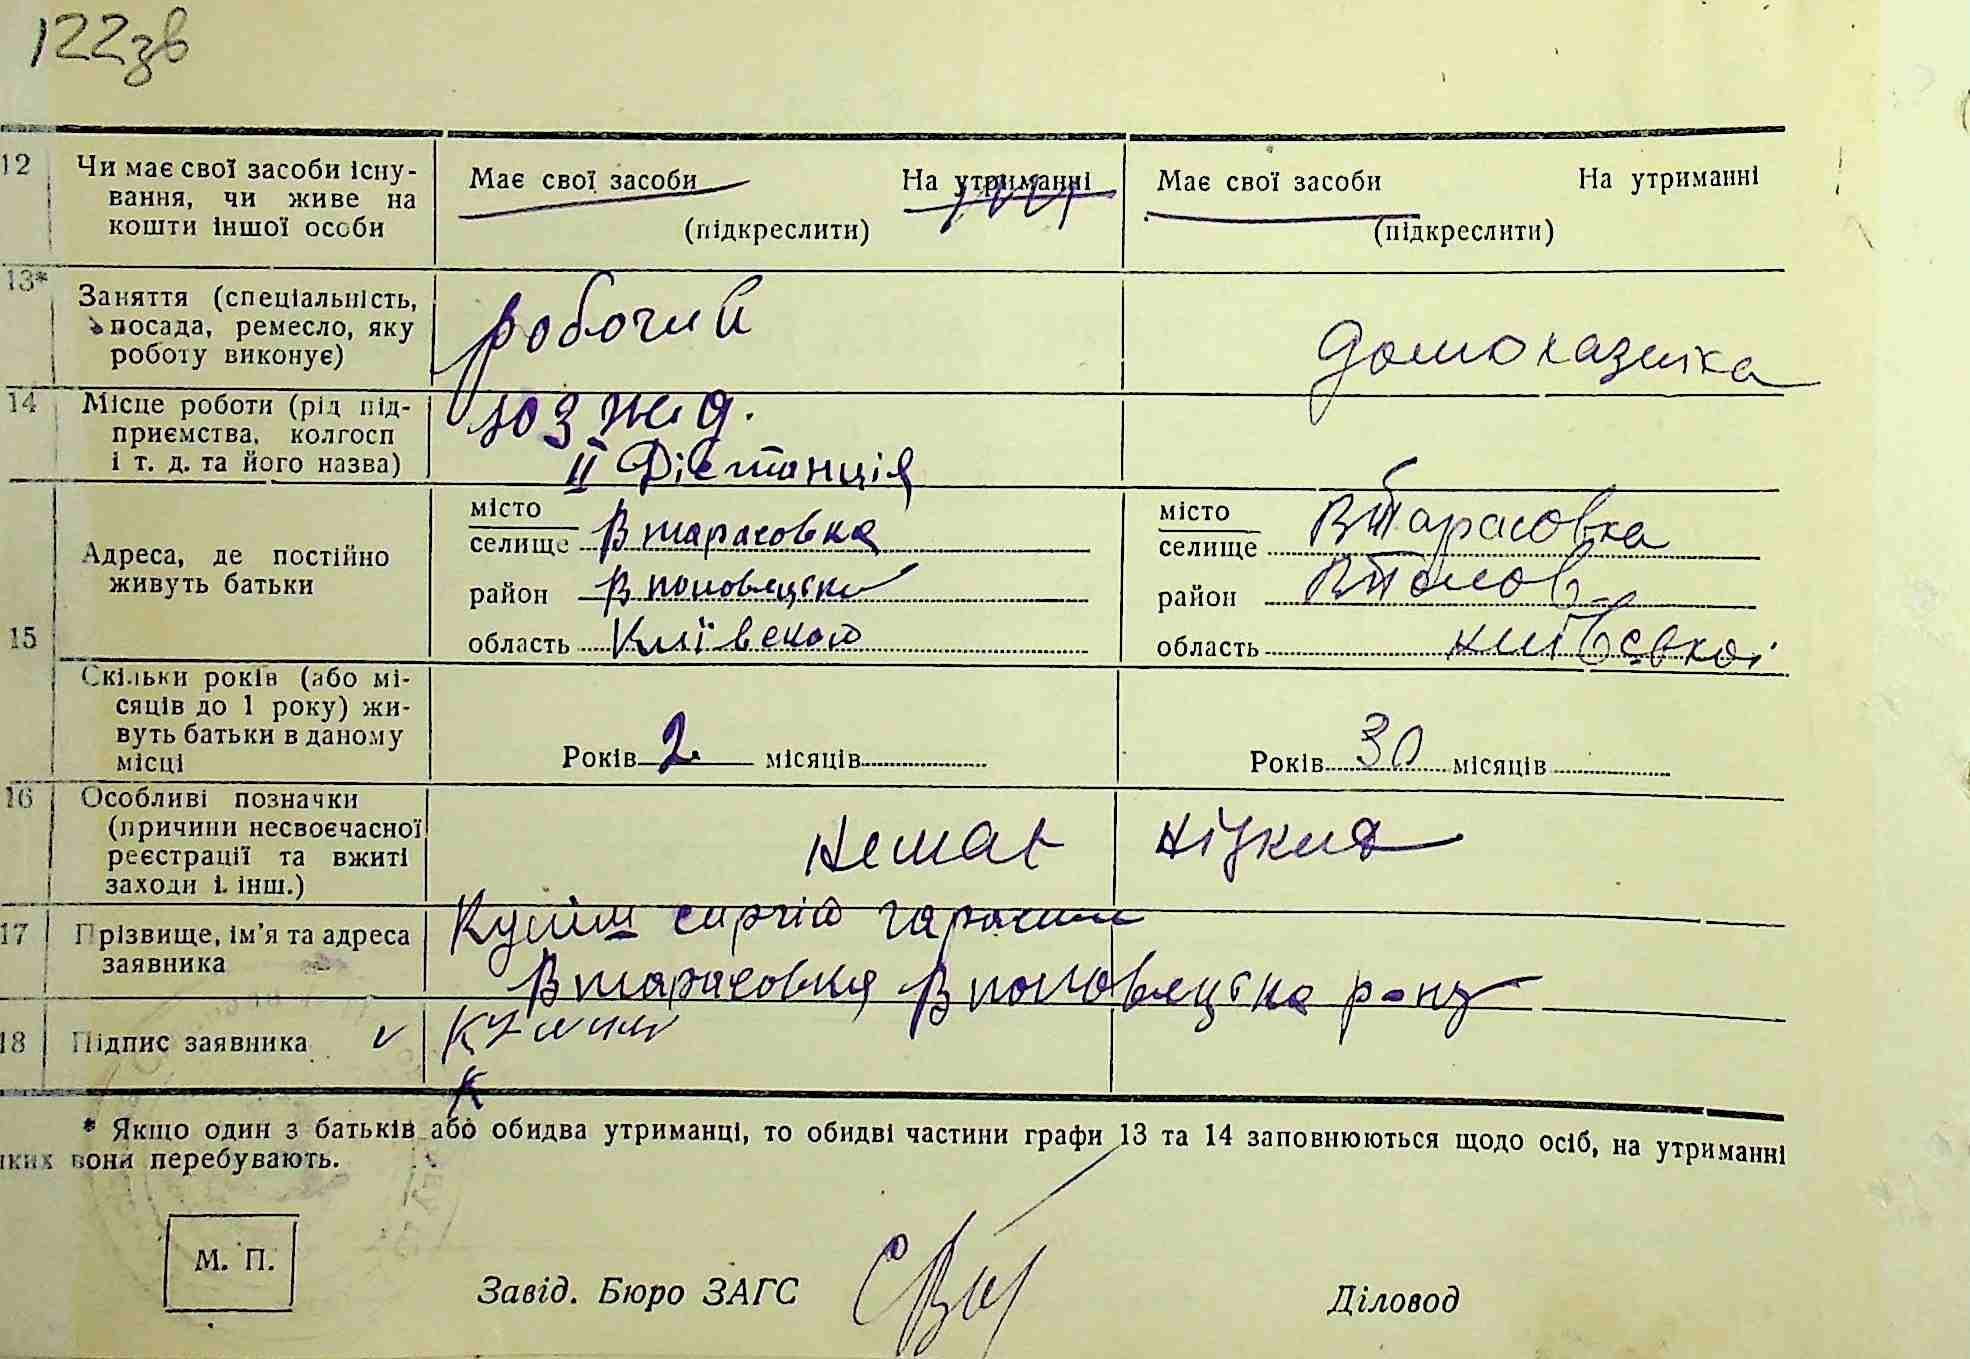 122зв
12 Чи має свої засоби існу-
вання, чи живе на
кошти іншої особи
Має свої засоби На утриманні
(підкреслити)
Має свої засоби На утриманні
(підкреслити)
13* Заняття (спеціальність,
посада, ремесло, яку
роботу виконує)
робочий
домохазяїка
14 Місце роботи (рід під-
приємства, колгосп
і т. д. та його назва)
юз жд.
II Дістанція
15 Адреса, де постійно
живуть батьки
місто
селище В тарасовка
район
область Київской
місто
селище ВТарасовка
район
область
Скільки років (або мі-
сяців до 1 року) жи-
вуть батьки в даному
місці
Років 2 місяців
Років 30 місяців
16 Особливі позначки
(причини несвоєчасної
реєстрації та вжиті
заходи і. інш.)
немає
17 Прізвище, ім'я та адреса
заявника
В тарасовка р-ну
18 Підпис заявника
К
* Якщо один з батьків або обидва утриманці, то обидві частини графи 13 та 14 заповнюються щодо осіб, на утриманні
яких вони перебувають.
М. П.
Завід. Бюро ЗАГС
Діловод